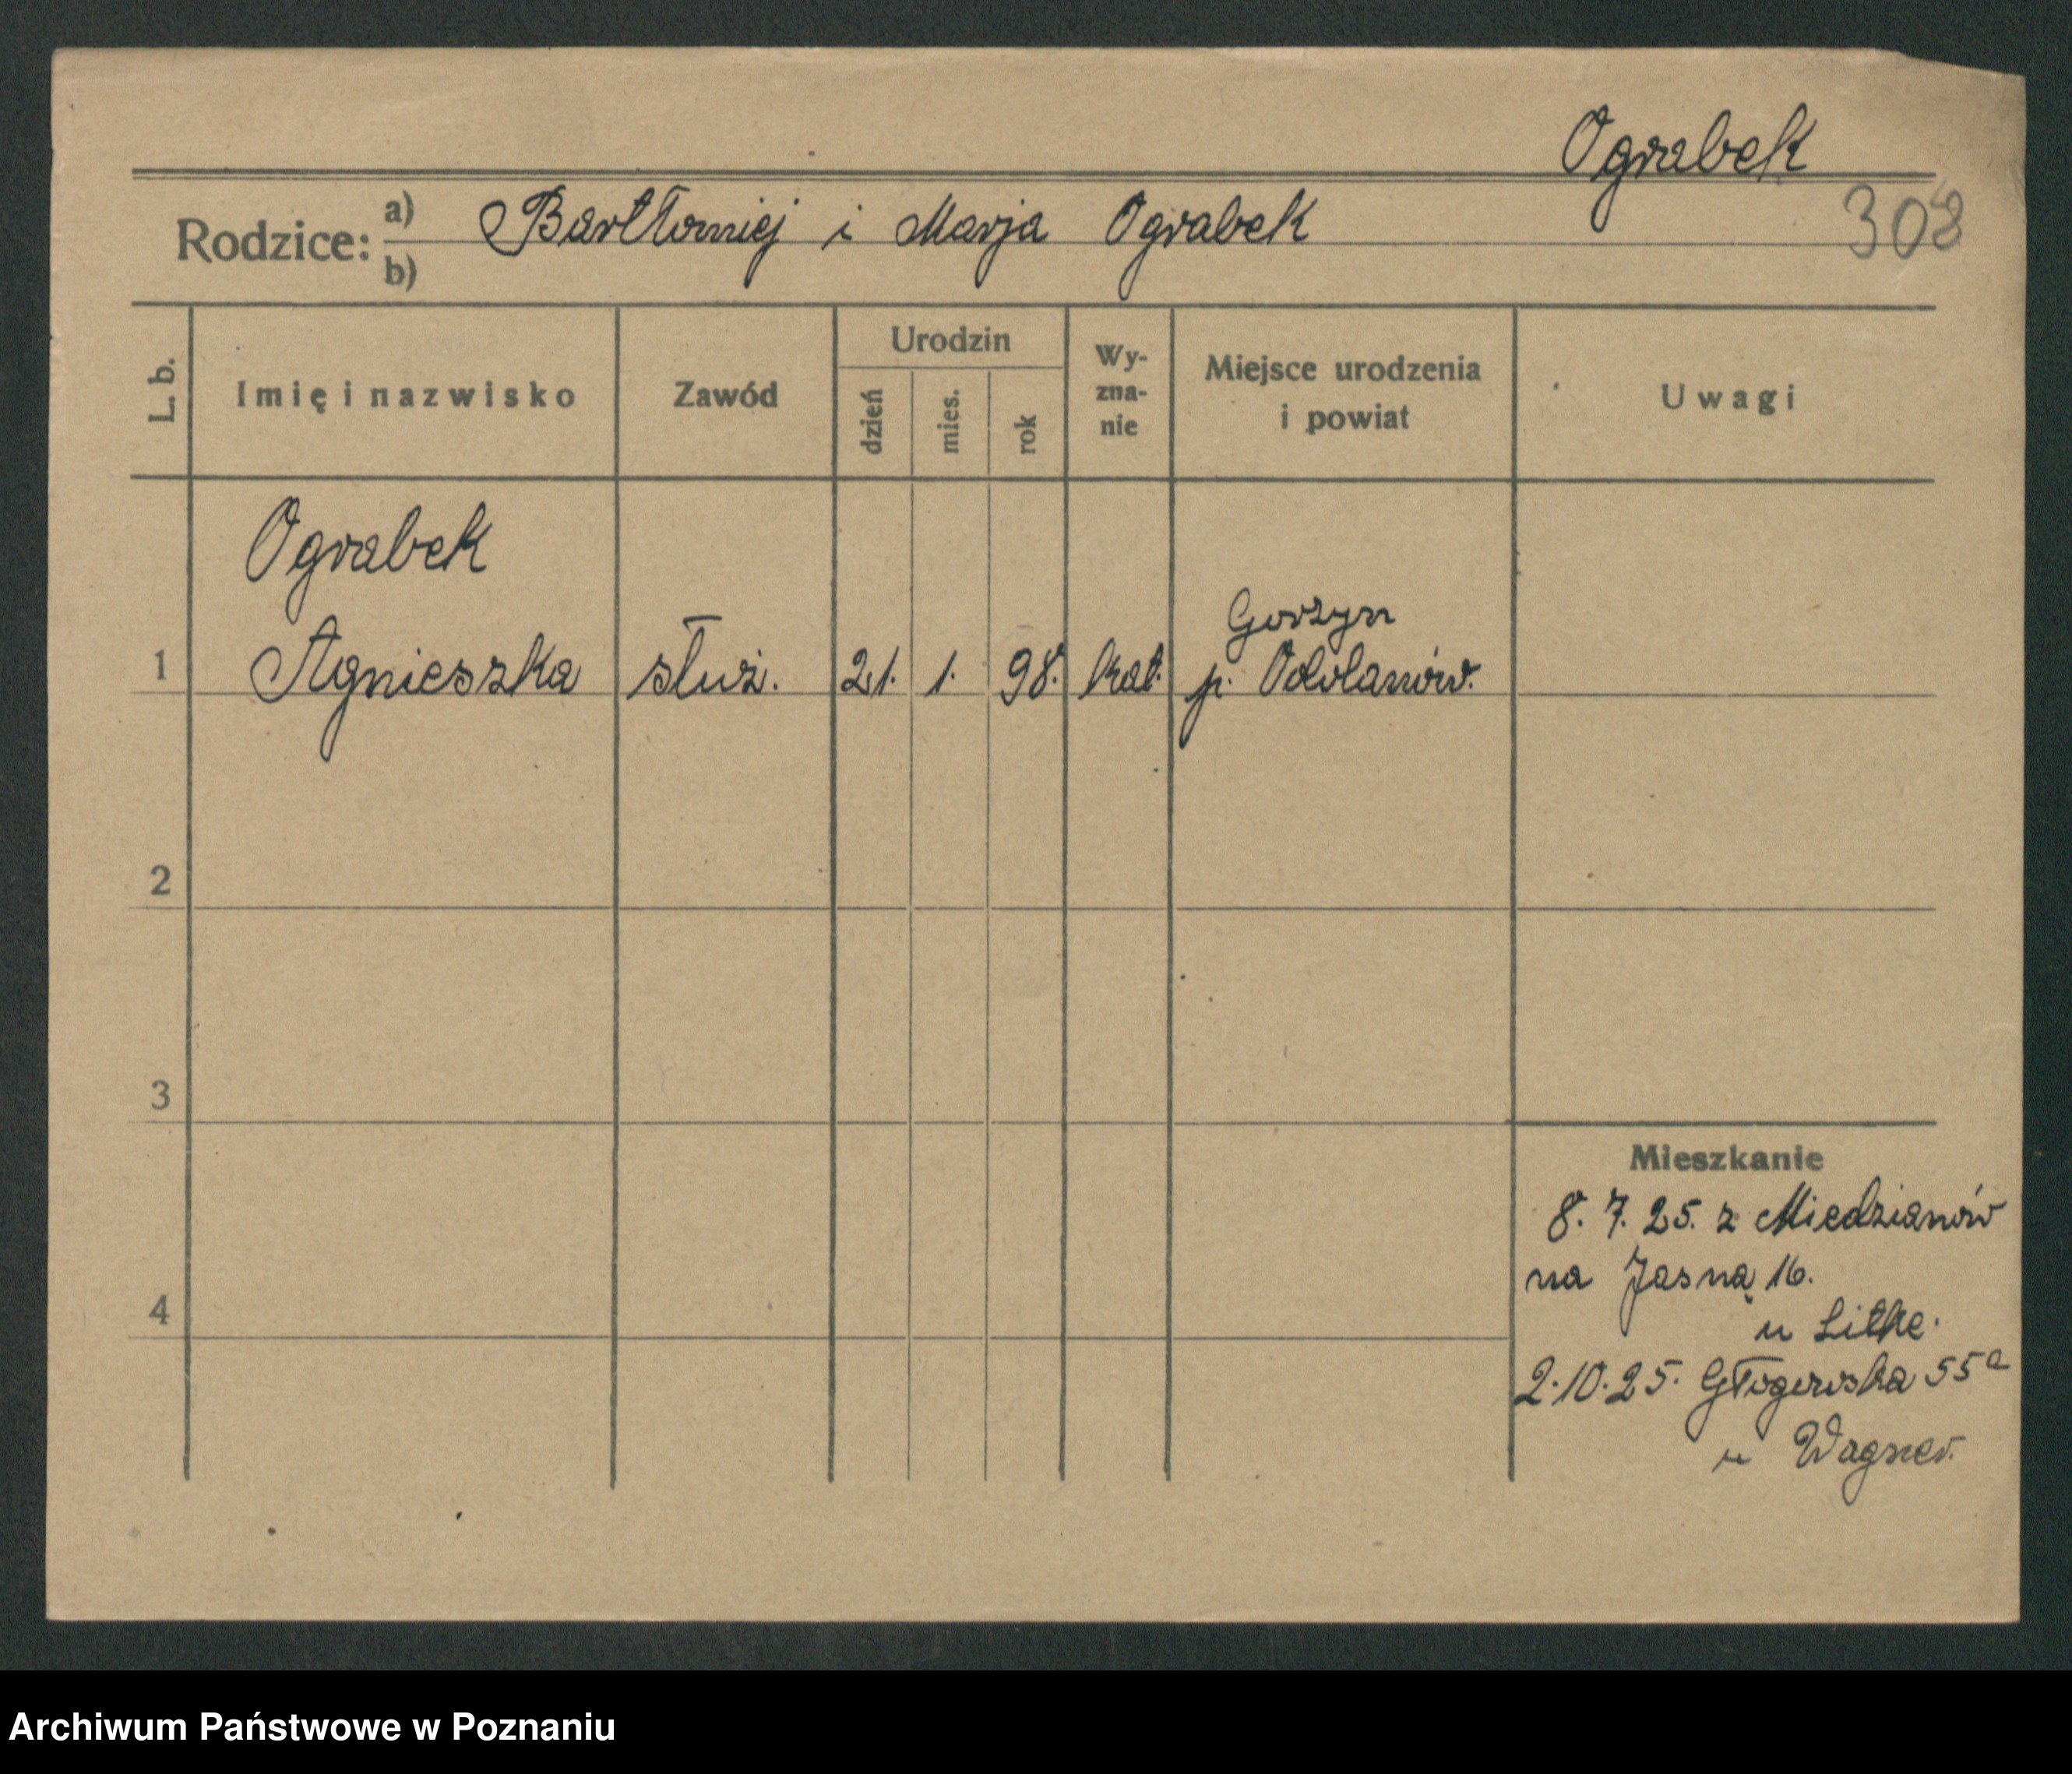 Ograbek
308
Rodzice: a) Bartłomiej i Marja Ograbek
b)
L. b.
Imię i nazwisko
Zawód
Urodzin
dzień
mies.
rok
Wy-
zna-
nie
Miejsce urodzenia
i powiat
Uwagi
Ograbek
Gorzyn
1 Agnieszka służ. 21. 1. 98. kat. p. Odolanów.
2
3
4
Mieszkanie
8. 7. 25. z Miedzianów
na Jasną 16.
u Litke.
2.10.25. Głogowska 55a
u Wagner.
Archiwum Państwowe w Poznaniu